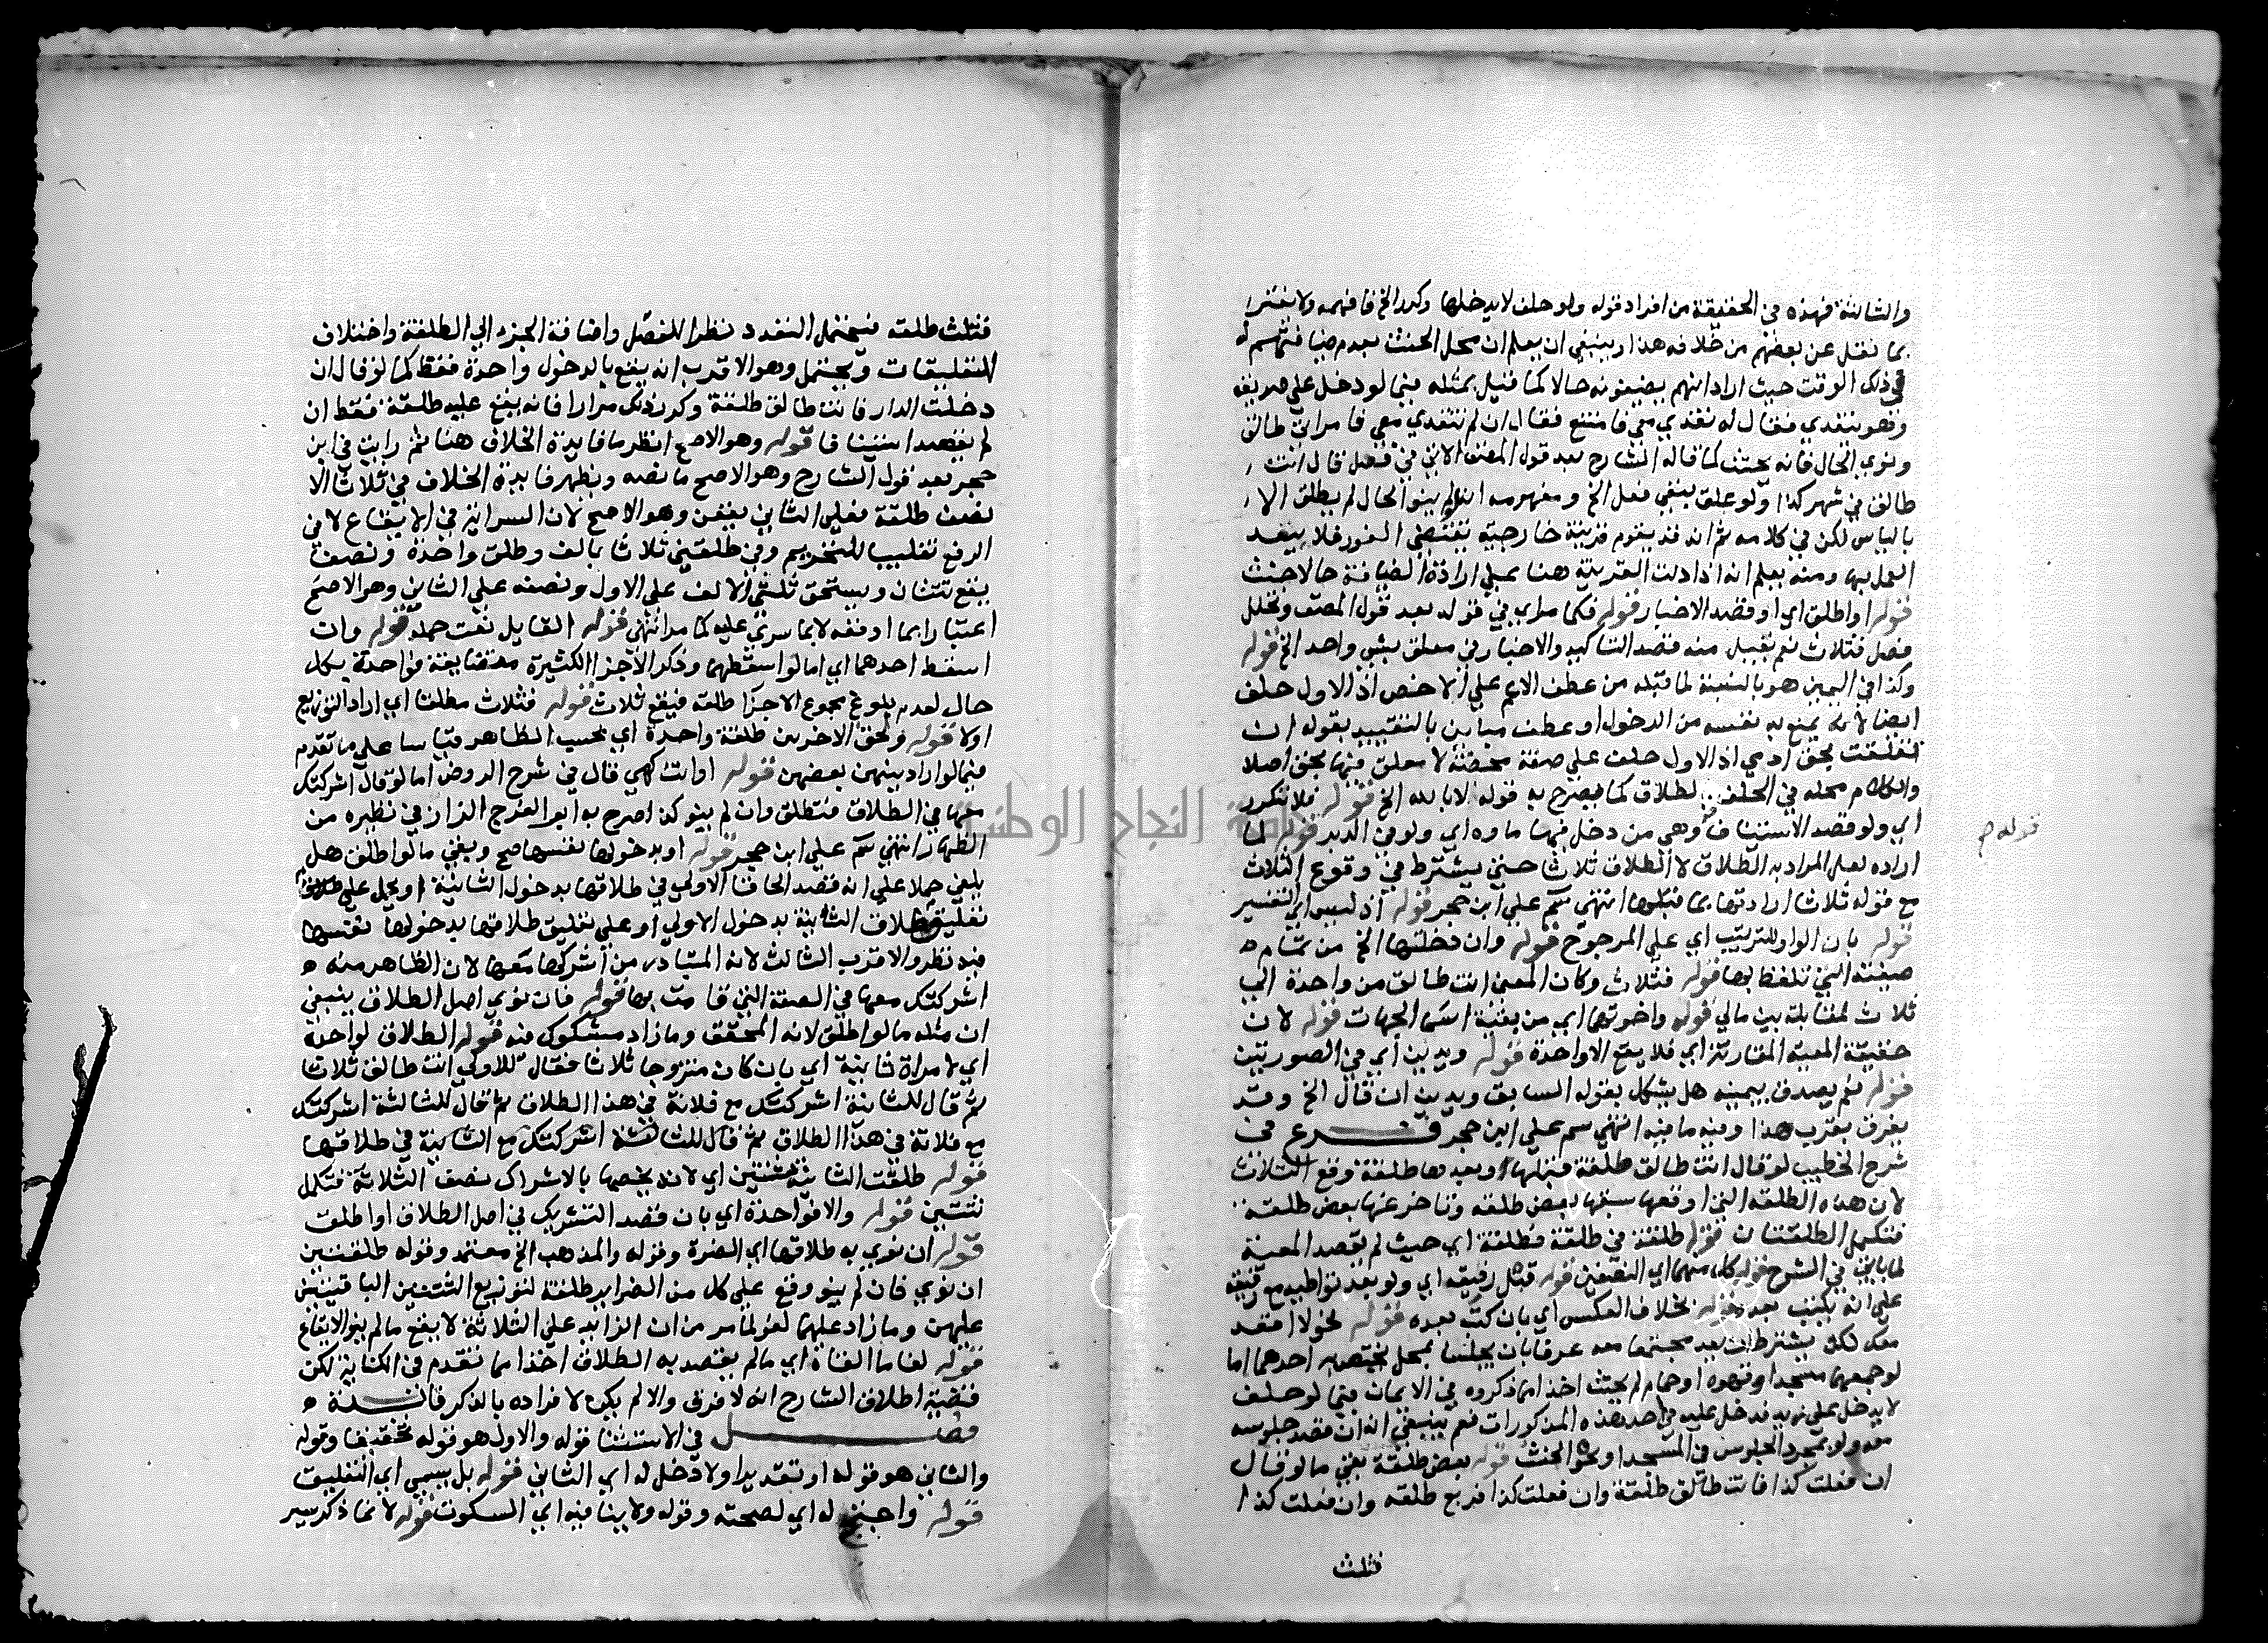 والثالثة فهذه في الحقيقة من افراد قوله ولو حلف لا يدخلها وكرر الخ فافهمه ولا تغتر
بما نقل عن بعضهم من خلافه هذا وينبغي ان يعلم ان محل الحنث بعدم
في ذلك الوقت حيث اراد انهم يضيفونه حالا كما قيل بمثله فيما لو دخل على صديقه
وهو يتغدي فقال له تغدي معي فامتنع فقال ان لم تتغدي معي فامراتي طالق
ونوي الحال فانه يحنث كما قاله الشارح بعد قول المصنف الاتي في فصل قال انت
طالق في شهر كذا ولو علق بنفي فعل الخ ومفهومه انه لو لم ينو الحال لم يطلق الا
بالياس لكن في كلامه ثم انه قد يقوم قرينة خارجية تقتضي الفور فلا يبعد
العمل بها ومنه يعلم انه اذا دلت القرينة هنا على ارادة الضيافة حالا حنث
قوله او اطلق اي او قصد الاخبار قوله فكما مر اي في قوله بعد قول المصنف وتخلل
فصل فثلاث نعم يقبل منه قصد التاكيد والاخبار في معلق بشي واحد الخ قوله
وكذا في اليمين هو بالنسبة لما قبله من عطف الاعم على الاخص اذ الاول حلف
ايضا لانه يمنع به نفسه من الدخول او عطف مباين بالتقييد بقوله ان
تعلقت بحق ادمي اذ الاول حلف على صفة محضة لا معلق فيها بحق اصلا
والكلام محله في الحلف بالطلاق كما يصرح به قوله لا بالله الخ قوله فلا تتكرر
اي ولو قصد الاستئناف وهي من دخل بها ماوه اي ولو في الدبر قوله لما
اراده لعل المراد به الطلاق لا الطلاق ثلاثا حتي يشترط في وقوع الثلاث
مع قوله ثلاثا ارادتها بما قبلها انتهي سم علي ابن حجر قوله اذ ليس اي التفسير
قوله بان الواو للترتيب اي علي المرجوح قوله وان دخلتها الخ من تمام
صيغته التي تلفظ بها قوله فثلاث وكان المعني انت طالق من واحدة الي
ثلاث لمقابلة بين مالي قوله واخوتها اي من بقية اسما الجهات قوله لان
حقيقة المعية المقارنة اي فلا يقع الا واحدة قوله ويدين اي في الصورتين
قوله ثم يصدق بيمينه هل يشكل بقوله السابق ويدين ان قال الخ وقد
يفرق بقرب هذا وفيه ما فيه انتهي سم علي ابن حجر فرع في
شرح الخطيب لو قال انت طالق طلقة قبلها او بعدها طلقة وقع الثلاث
لان هذه الطلقة التي اوقعها سبقها بعض طلقه وتاخر عنها بعض طلقة
فتكمل الطلقتان قوله طلقة في طلقة فطلقة اي حيث لم يقصد المعية
لما ياتي في الشرح قوله كل منهما اي النصفين قوله قبل رفيقه اي ولو بعد تواطيه مع رفيقه
علي انه يكتب بعد قوله بخلاف العكس اي بان كتب بعده قوله نحو لا اقعد
معك لكن يشترط ان يعد مجتمعا معه عرفا بان يجلسا بمحل يختص به احدهما اما
لو جمعهما مسجد او قهوة او حمام لم يحنث اخذا مما ذكروه في الايمان فيما لو حلف
لا يدخل علي زيد فدخل عليه في احد هذه المذكورات نعم ينبغي انه ان قصد جلوسه
معه ولو بمجرد الجلوس في المسجد او نحو الحنث قوله بعض طلقة بقي ما لو قال
ان فعلت كذا فانت طالق طلقة وان فعلت كذا فربع طلقه وان فعلت كذا
فثلث
قوله م
فثلث طلقه فيحتمل التعدد نظرا للفصل واضافة الجزء الي الطلقة واختلاف
التعليقات ويحتمل وهو الاقرب انه يقع بالدخول واحدة فقط كما لو قال ان
دخلت الدار فانت طالق طلقة وكرر ذلك مرارا فانه يقع عليه طلقة فقط ان
لم يقصد استئنافا قوله وهو الاصح انظر ما فايدة الخلاف هنا ثم رايت في ابن
حجر بعد قول الشارح وهو الاصح ما نصه ويظهر فايدة الخلاف في ثلاث الا
نصف طلقة فعلي الثاني يقعن وهو الاصح لان السراية في الايقاع لا في
الرفع تغليبا للتحريم وفي طلقني ثلاثا بالف وطلق واحدة ونصف
يقع ثنتان ويستحق ثلثي الالف علي الاول ونصفه علي الثاني وهو الاصح
اعتبارا بما اوقعه لا بما سري عليه كما مر انتهي قوله القايل نعت حمله قوله وان
اسقط احدهما اي اما لو اسقطهما وذكر الاجزا الكثيرة متضايفة فواحدة بكل
حال لعدم بلوغ مجموع الاجزا طلقه فيقع ثلاث قوله فثلاث مطلقا اي اراد التوزيع
اولا قوله ولحق الاخريين طلقة واحدة اي بحسب الظاهر قياسا علي ما تقدم
فيما لو اراد بينهن بعضهن قوله او انت كهي قال في شرح الروض اما لو قال اشركتك
معها في الطلاق فتطلق وان لم ينو كذا صرح به ابو الفرج الزاز في نظيره من
الظهار انتهي سم علي ابن حجر قوله او بدخولها نفسها صح وبقي ما لو اطلق هل
يلغي حملا علي انه قصد الحاق الاولي في طلاقها بدخول الثانية او يحمل علي
تعليق طلاق الثانية بدخول الاولي او علي تعليق طلاقها بدخولها نفسها
فيه نظر والاقرب الثالث لانه المتبادر من اشركتها معها لان الظاهر منه
اشركتك معها في الصفة التي قامت بها قوله فان نوي اصل الطلاق ينبغي
ان مثله ما لو اطلق لانه المحقق وما زاد مشكوك فيه قوله الطلاق لواحدة
اي لامراة ثانية اي بان كان متزوجا ثلاثا فقال للاولي انت طالق ثلاثا
ثم قال للثانية اشركتك مع فلانة في هذا الطلاق ثم قال للثالثة اشركتك
مع فلانة في هذا الطلاق ثم قال للثالثة اشركتك مع الثانية في طلاقها
قوله طلقت الثانية ثنتين اي لانه يخصها بالاشراك نصف الثلاثة فتكمل
ثنتين قوله والا فواحدة اي بان قصد التشريك في اصل الطلاق او اطلق
قوله ان نوي به طلاقها اي الضرة وقوله والمذهب الخ معتمد وقوله طلقتين
ان نوي فان لم ينو وقع علي كل من الضراير طلقة لتوزيع الثنتين الباقيتين
عليهن وما زاد عليهما لغو لما مر من ان الزايد علي الثلاثة لا يقع ما لم ينو الايقاع
قوله لغا ما الغاه اي ما لم يقصد به الطلاق اخذا مما تقدم في الكناية لكن
قضية اطلاق الشارح انه لا فرق والا لم يكن لافراده بالذكر فائدة
فصل في الاستثنا قوله والاول هو قوله تحقيقا وقوله
والثاني هو قوله او تقديرا ولا دخل له اي الثاني قوله بل يسمي اي التعليق
قوله واحتج له اي لصحته وقوله ولا ينافيه اي السكوت قوله لا نما ذكر يسير